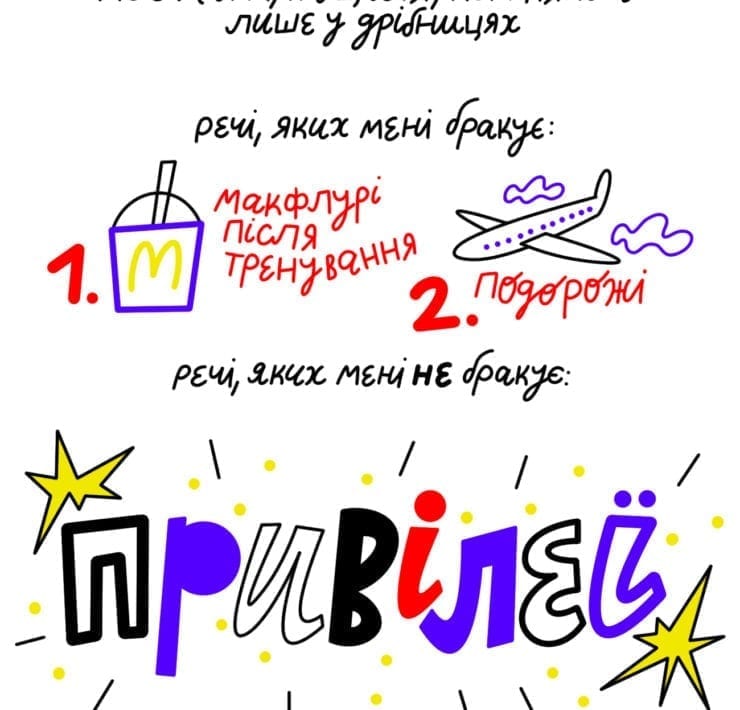 лише у дрібницях
речі, яких мені бракує:
1.
M
макфлурі
після
тренування
2.
подорожі
речі, яких мені НЕ бракує:
привілеї